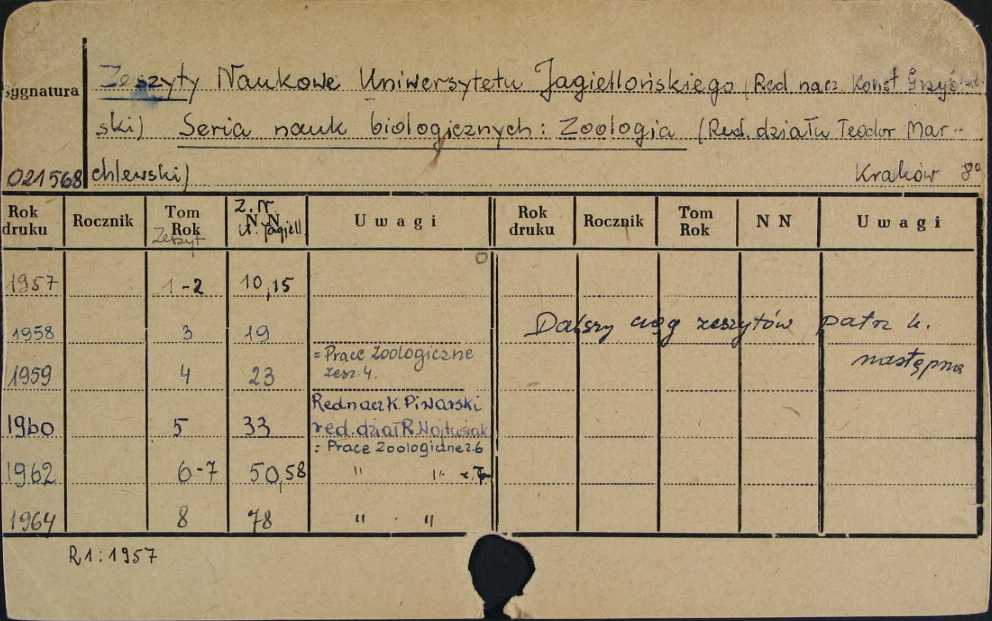 Sygnatura
Zeszyty Naukowe Uniwersytetu Jagiellońskiego (Red. nacz. Konst. Grzyb
ski) Seria nauk biologicznych: Zoologia (Red. działu Teodor Mar-
021568 chlewski) Kraków 8°
Rok druku Rocznik Tom Rok Zeszyt Z. N. N N U. Jagiell U w a g i Rok druku Rocznik Tom Rok N N U w a g i
1957 1-2 10,15
1958 3 19 Dalszy ciąg zeszytów patrz k.
następna
= Prace Zoologiczne
1959 4 23 zesz. 4.
Red nacz K. Piwarski
1960 5 33 red. dział R. Wojtusiak
= Prace Zoologiczne z. 6
1962 6-7 50,58 " " z. 7
1964 8 78 " "
R1: 1957